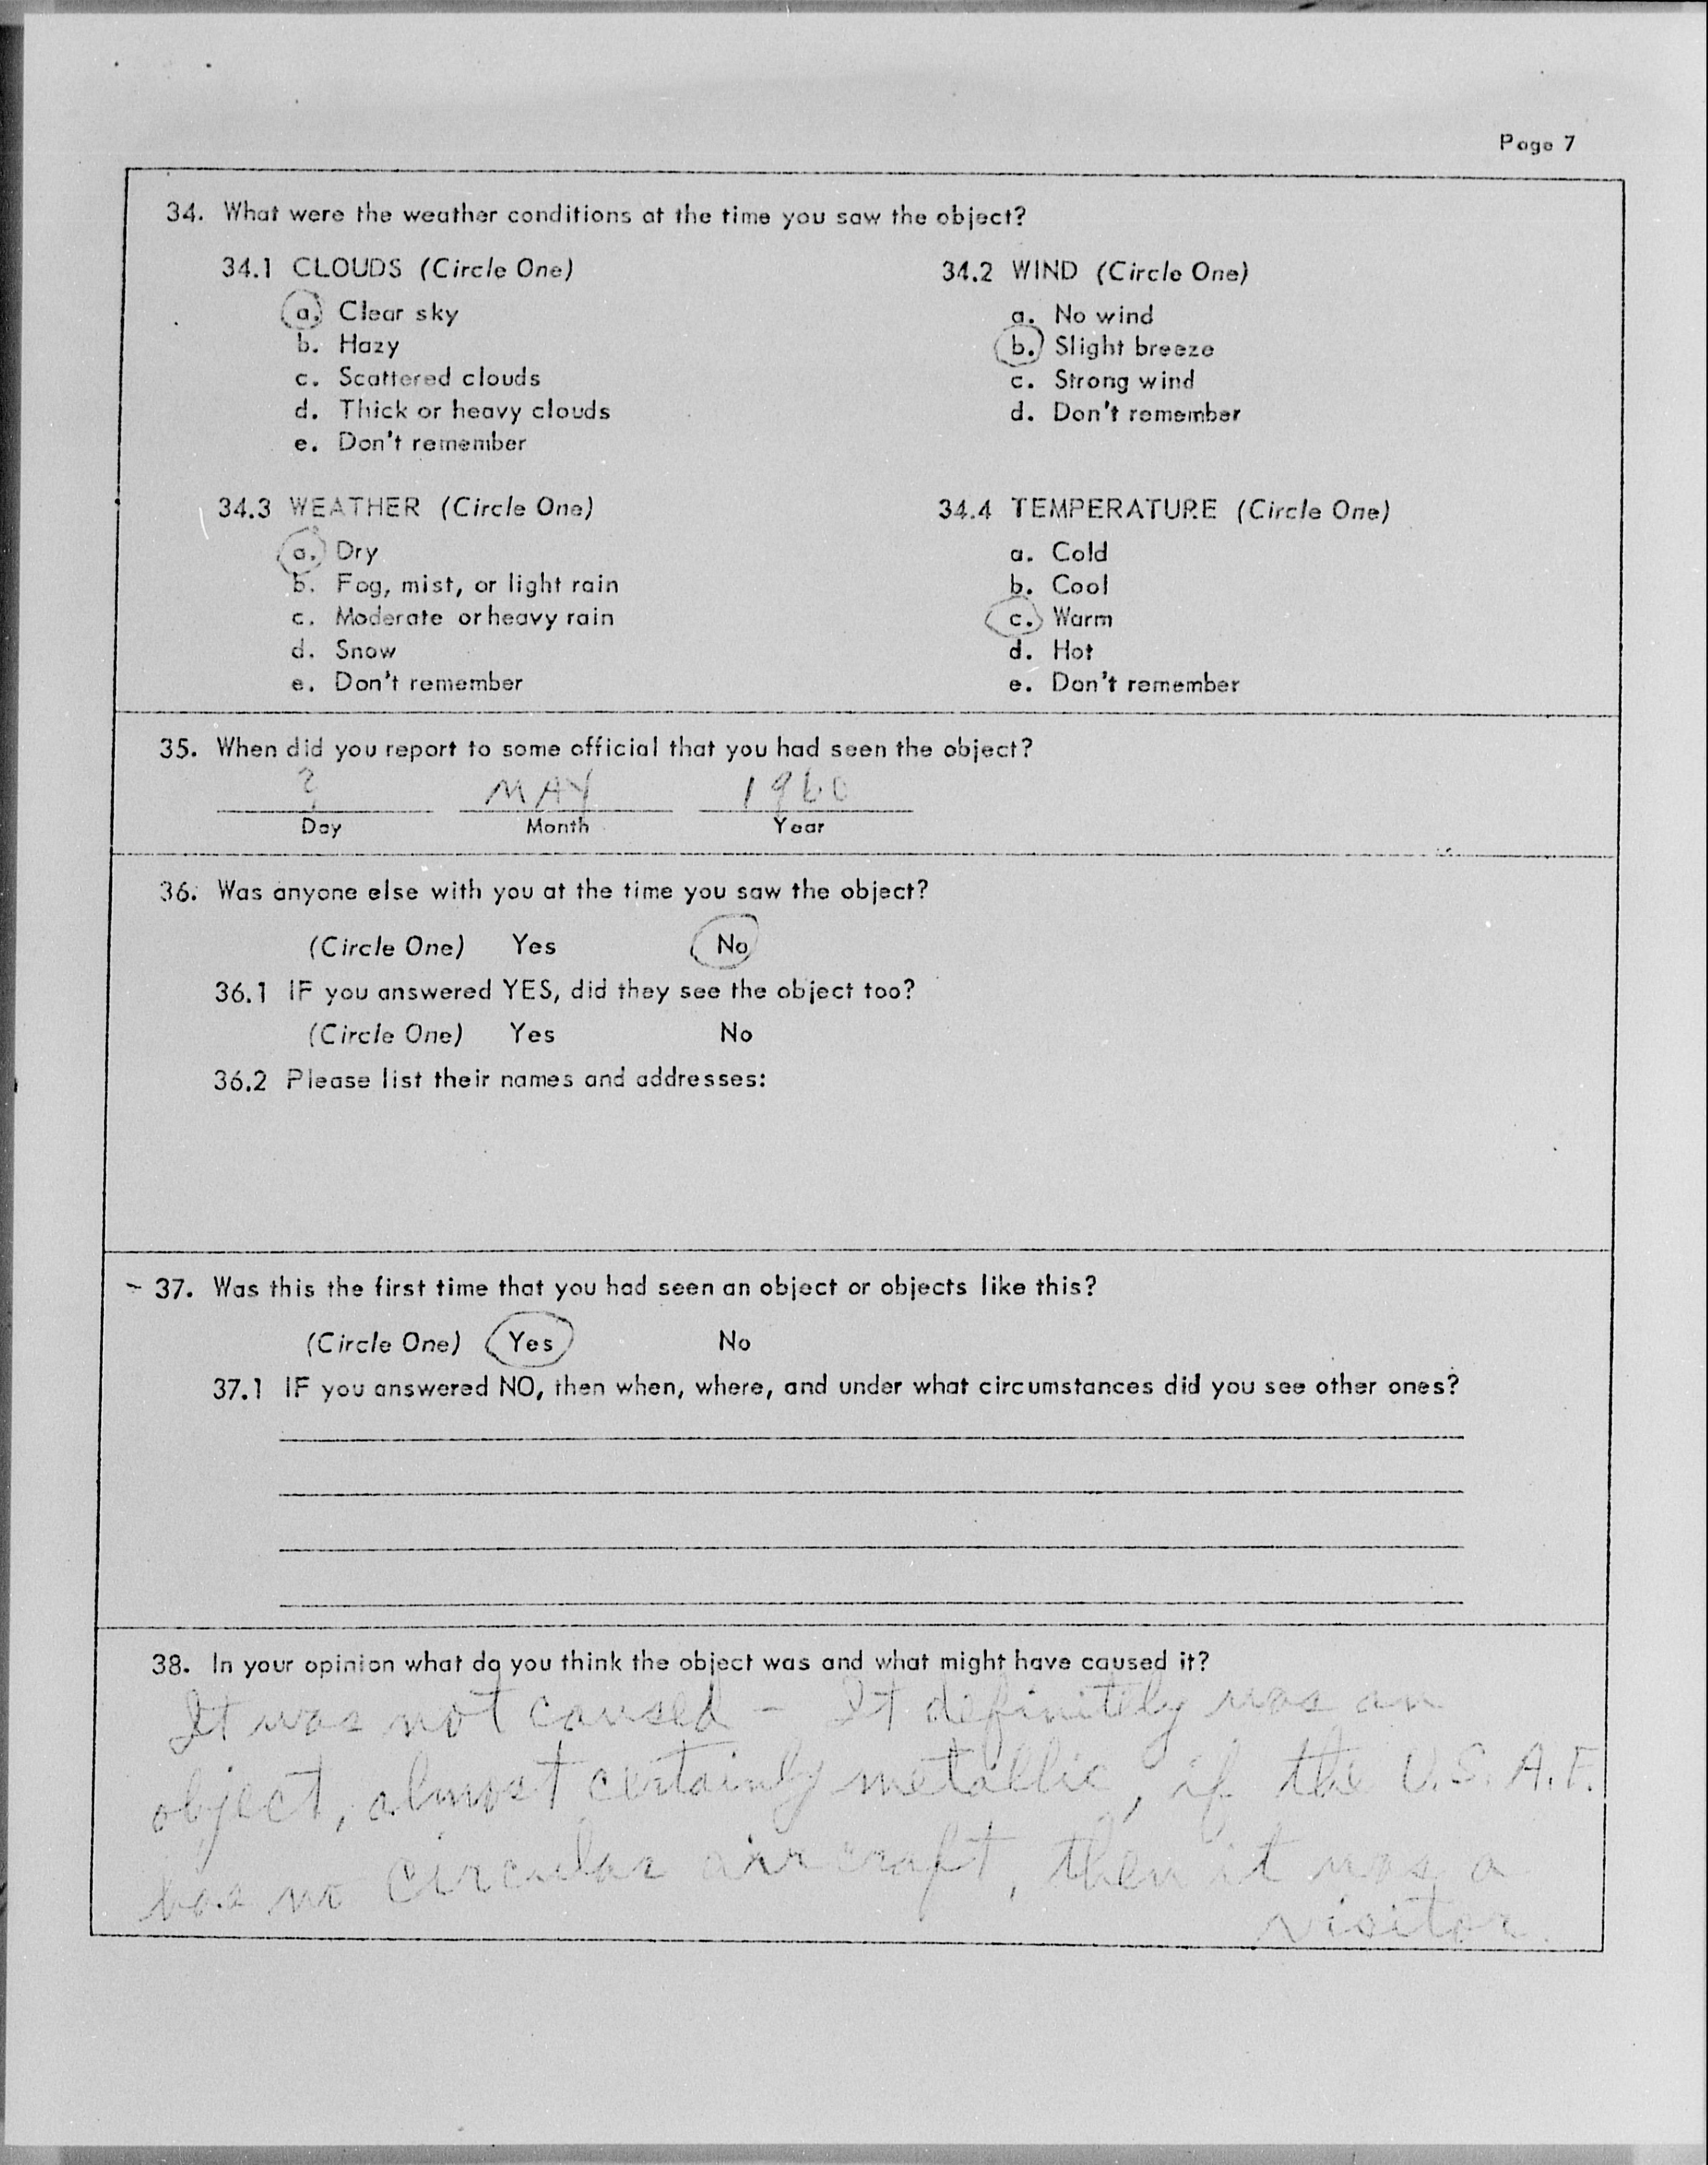 Page 7
34. What were the weather conditions at the time you saw the object?
34.1 CLOUDS (Circle One)
a. Clear sky
b. Hazy
c. Scattered clouds
d. Thick or heavy clouds
e. Don't remember
34.2 WIND (Circle One)
a. No wind
b. Slight breeze
c. Strong wind
d. Don't remember
34.3 WEATHER (Circle One)
a. Dry
b. Fog, mist, or light rain
c. Moderate or heavy rain
d. Snow
e. Don't remember
34.4 TEMPERATURE (Circle One)
a. Cold
b. Cool
c. Warm
d. Hot
e. Don't remember
35. When did you report to some official that you had seen the object?
? MAY 1960
Day Month Year
36. Was anyone else with you at the time you saw the object?
(Circle One) Yes No
36.1 IF you answered YES, did they see the object too?
(Circle One) Yes No
36.2 Please list their names and addresses:
37. Was this the first time that you had seen an object or objects like this?
(Circle One) Yes No
37.1 IF you answered NO, then when, where, and under what circumstances did you see other ones?
38. In your opinion what do you think the object was and what might have caused it?
It was not caused - It definitely was an
object, almost certainly metallic, if the U.S.A.F.
has no circular aircraft, then it was a
visitor.